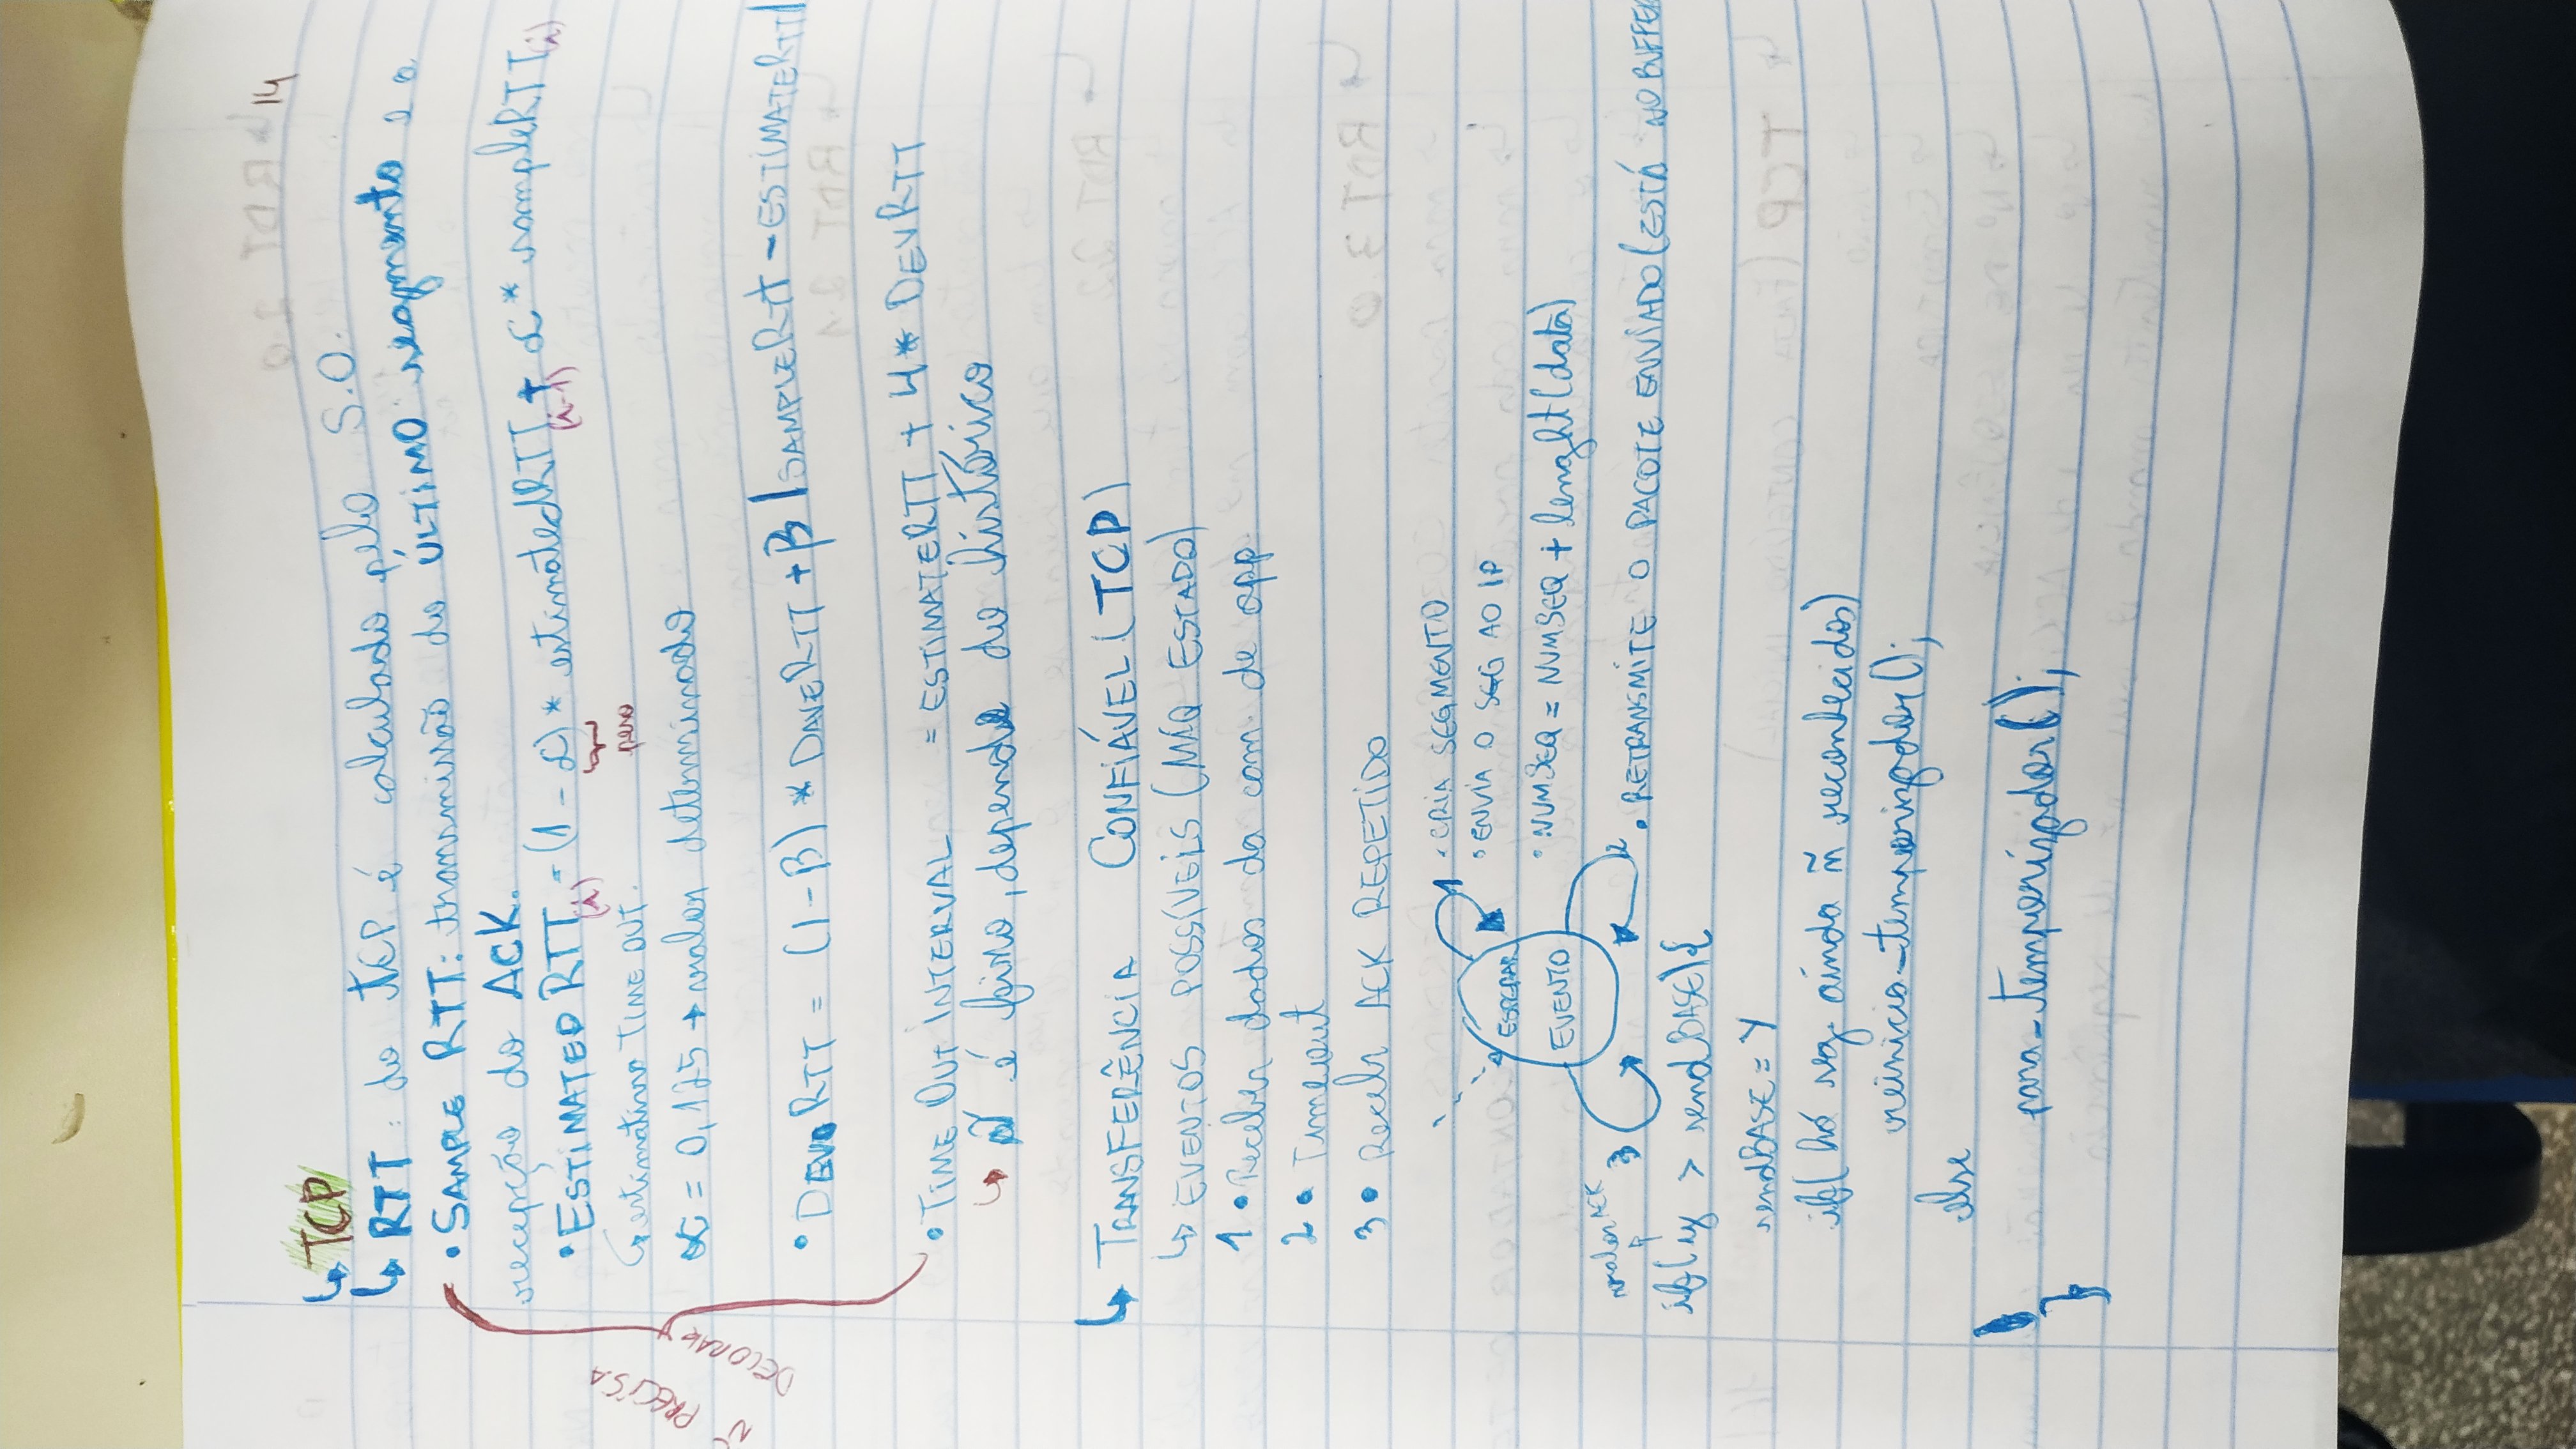 14
↳ TCP
↳ RTT: do TCP é calculado pelo S.O.
• SAMPLE RTT: transmissão do ÚLTIMO segmento e a
recepção do ACK.
• ESTIMATED RTT(i) = (1 - α) * estimatedRTT(i-1) + α * sampleRTT(i)
peso
↳ estimativa TIME OUT.
α = 0,125 → valor determinado
Ñ PRECISA
DECORAR
• DEVRTT = (1-β) * DAVERTT + β |SAMPLERTT - ESTIMATERTT|
• TIME OUT INTERVAL = ESTIMATERTT + 4 * DEVRTT
↳ ñ é fixo, depende do histórico
↳ TRANSFERÊNCIA CONFIÁVEL (TCP)
↳ EVENTOS POSSÍVEIS (MÁQ ESTADO)
1 • Receber dados da cam. de app.
2 • Timeout
3 • Receber ACK REPETIDO
ESPERAR
EVENTO
1 • CRIA SEGMENTO
• ENVIA O SEG AO IP
• NUMSEQ = NUMSEQ + lenght(data)
2 • RETRANSMITE O PACOTE ENVIADO (ESTÁ NO BUFFER
valor ACK 3
if(y > sendBASE){
sendBASE = Y
if( há seg. ainda ñ reconhecidos)
reinicia_temporizador();
else
para_temporizador();
}